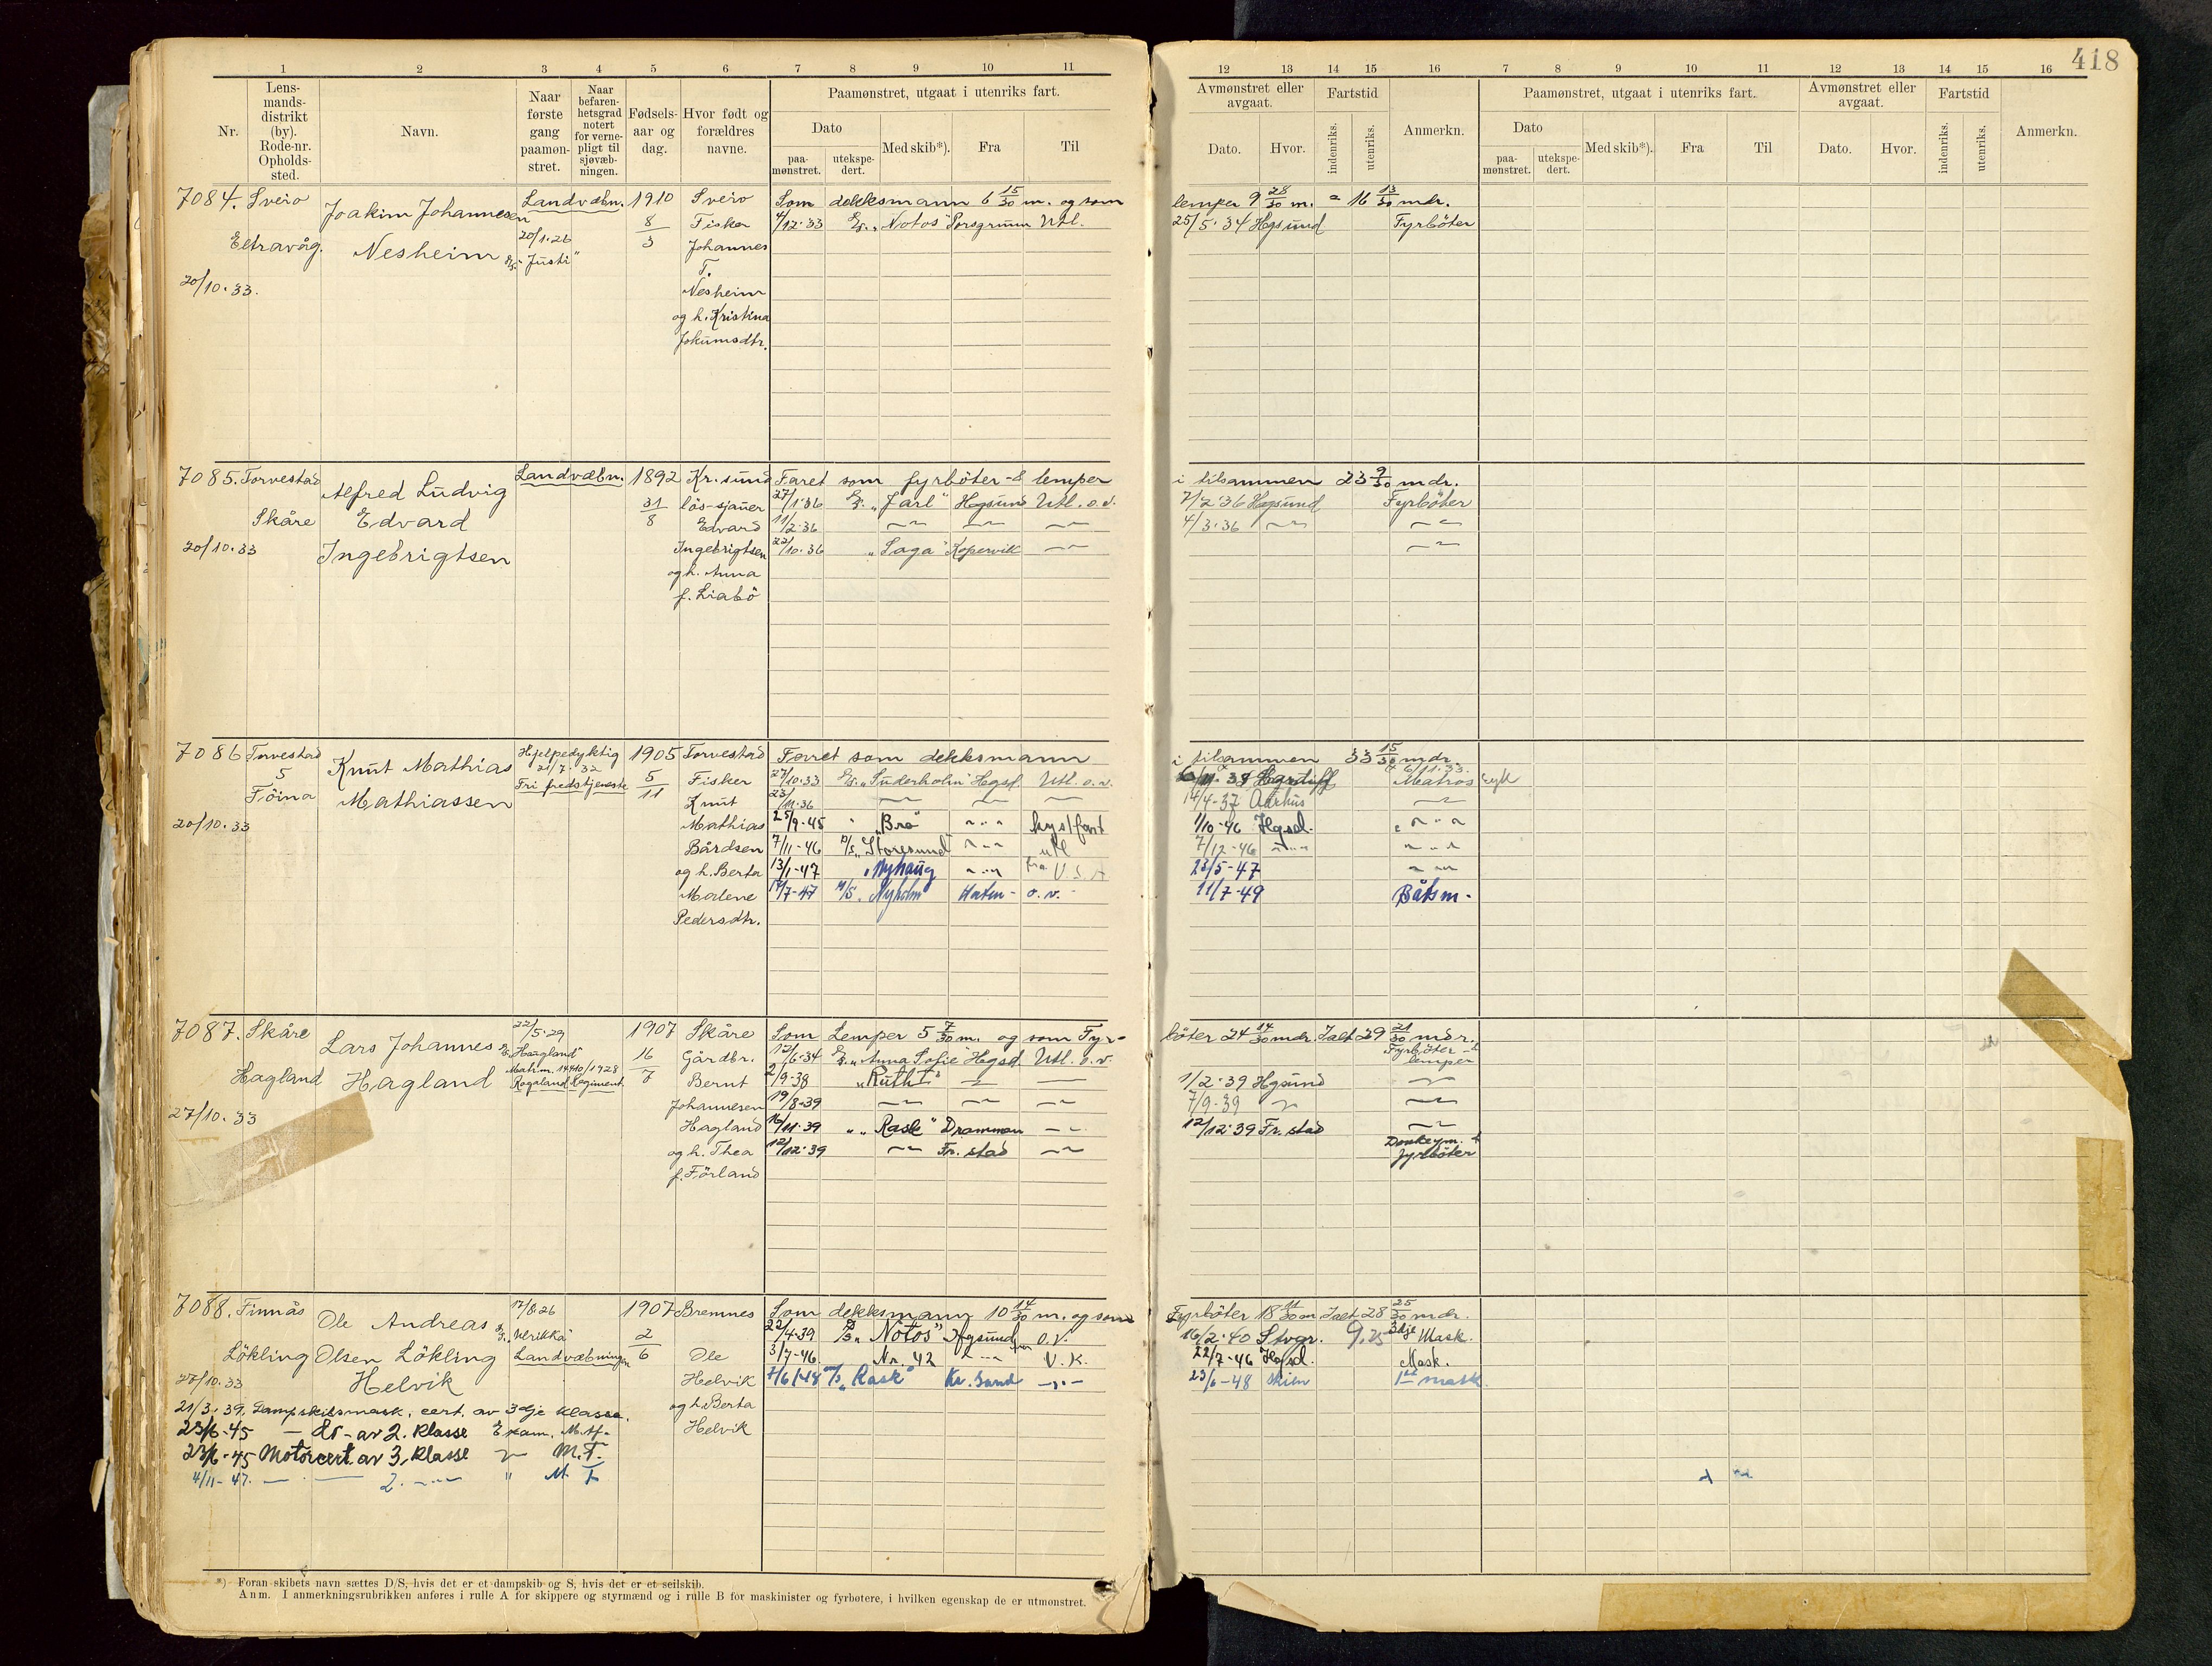 418
1 2 3 4 5 6 7 8 9 10 11
12 13 14 15 16 7 8 9 10 11 12 13 14 15 16
Nr.
Lens-
mands-
distrikt
(by).
Rode-nr.
Opholds-
sted.
Navn.
Naar
første
gang
paamøn-
stret.
Naar
befaren-
hetsgrad
notert
for verne-
pligt til
sjøvæb-
ningen.
Fødsels-
aar og
dag.
Hvor født og
forældres
navne.
Paamønstret, utgaat i utenriks fart.
Dato
paa-
mønstret.
utekspe-
dert.
Med skib*).
Fra
Til
Avmønstret eller
avgaat.
Dato.
Hvor.
Fartstid
indenriks.
utenriks.
Anmerkn.
Paamønstret, utgaat i utenriks fart.
Dato
paa-
mønstret.
utekspe-
dert.
Med skib*).
Fra
Til
Avmønstret eller
avgaat.
Dato.
Hvor.
Fartstid
indenriks.
utenriks.
Anmerkn.
7084. Sveio
Eltravåg.
20/10.33.
Joakim Johannesen
Nesheim
Landvæbn.
20/1.26
"Justi"
1910
8/3
Sveio
Fisker
Johannes
T.
Nesheim
og h. Kristina
Jokumsdtr.
Som dekksmann 6 15/30 m. og som lemper 9 28/30 m. = 16 13/30 mdr.
4/12.33 "Notos" Porsgrunn Utl. 25/5.34 Hgsund Fyrböter
7085. Torvestad
Skåre
20/10.33
Alfred Ludvig
Edvard
Ingebrigtsen
Landvæbn.
1892
31/8
Kr.sund
lös-sjauer
Edvard
Ingebrigtsen
og h. Anna
f. Liabö
Faret som fyrböter & lemper i tilsammen 23 9/30 mdr.
27/1.36 "Jarl" Hgsund Utl. o.v. 7/2.36 Hgsund Fyrböter
11/2.36 —"— —"— —"— 4/3.36 —"— —"—
22/10.36 "Saga" Kopervik —"— —"—
7086 Torvestad
5
Föina
20/10.33
Knut Mathias
Mathiassen
Hjelpedyktig
21/7.32
Fri fredstjeneste
1905
5/11
Torvestad
Fisker
Knut
Mathias
Bårdsen
og h. Berta
Malene
Pedersdtr.
Faret som dekksmann i tilsammen 33 15/30 mdr.
27/10.33 "Suderholm" Hgsd. Utl. o.v. Matros syk
23/11.36 —"— —"— —"— 14/4-37 Aarhus —"—
25/9-45 " "Bro" —"— kystfart 1/10-46 Hgsd. —"—
7/11-46 D/S "Storesund" —"— utl 7/12-46 —"— —"—
13/1-47 "Nyhaug —"— fra USA 23/5-47 —"—
M/S. Nyholm o.v. 11/7-49 Båtsm.
7087. Skåre
Hagland
27/10.33
Lars Johannes
Hagland
22/5.29
"Hagland"
Matr.m. 14440/1928
Rogaland Regiment
1907
16/7
Skåre
Gårdbr.
Bernt
Johannesen
Hagland
og h. Thea
f. Förland
Som Lemper 5 7/30 m. og som Fyrböter 24 14/30 mdr. Ialt 29 21/30 mdr.
12/6.34 "Anna Sofie" Hgsd. Utl. o.v. Fyrböter &
lemper
2/9.38 "Ruth I" —"— —"— 1/2.39 Hgsund —"—
19/8-39 —"— —"— —"— 7/9.39 —"— —"—
16/11.39 " "Rask" Drammen —"— 12/12.39 Fr.stad —"—
12/12.39 —"— Fr.stad —"— Donkeym. &
fyrböter
7088. Finnås
Lökling
27/10.33
Ole Andreas
Olsen Lökling
Helvik
17/8.26
"Ulrikka"
Landvæbningen
1907
2/6
Bremnes
Ole
Helvik
og h. Berta
Helvik
Som dekksmann 10 14/30 m. og som Fyrböter 18 11/30 m. Ialt 28 25/30 mdr.
22/4.39 "Notos" Hgsund o.v. 16/2.40 Stvgr. 3dje Mask.
3/7-46. Nr. 42 —"— U.K. 22/7-46 Hgsd. Mask.
7/6 1948 "Rask" Kr.sund —"— 23/6-48 Skien 1ste mask.
21/3.39. Dampskibsmask. cert. av 3dje klasse.
23/6-45 — Do — av 2. klasse Exam. M.Af.
23/6-45 Motorcert. av 3. klasse —"— M.T.
4/11-47. — — 2. —"— " M. T.
*) Foran skibets navn sættes D/S, hvis det er et dampskib og S, hvis det er et seilskib.
Anm. I anmerkningsrubrikken anføres i rulle A for skippere og styrmænd og i rulle B for maskinister og fyrbøtere, i hvilken egenskap de er utmønstret.